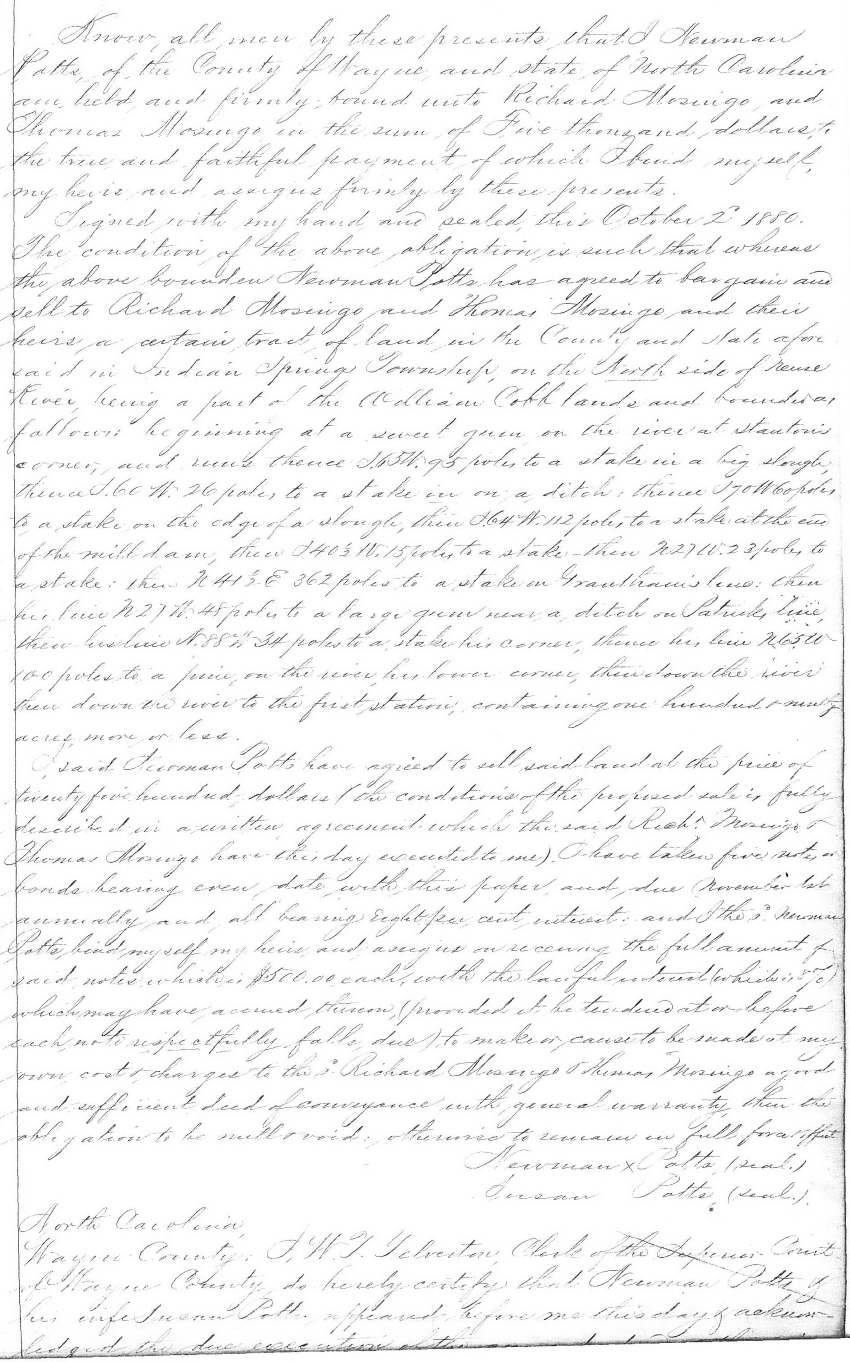 Know, all men by these presents that, I Newman
Potts, of the County of Wayne, and state of North Carolina
am held and firmly bound unto Richard Mosingo, and
Thomas Mosingo in the sum, of Five thousand, dollars, to
the true and faithful payment, of which I bind myself,
my heirs and assigns firmly by these presents.
Signed with my hand and sealed, this October 2d 1880.
The condition of the above obligation is such that whereas
the above bounden Newman Potts, has agreed to bargain and
sell to Richard Mosingo and Thomas Mosingo, and their
heirs, a certain tract, of land, in the County and state afore
said in Indian Spring Township, on the North side of Neuse
River, being a part of the William Cobb lands and bounded as
follows: beginning at a sweet gum, on the river at Stanton's
corner, and runs thence S.65 W. 95 poles to a stake in a big slough,
thence S.60 W. 26 poles to a stake in on a ditch: thence S 70 W 60 poles
to a stake on the edge of a slough, then S 64 W. 112 poles to a stake at the end
of the mill dam, then S 40½ W. 15 poles to a stake - then N 27 W. 23 poles to
a stake: then N 41½ E 362 poles to a stake on Grantham's line: then
his line N 27 W. 48 poles to a large gum near a ditch on Patrick's line,
then his line N. 88 W 34 poles to a stake his corner, thence his line N. 65 W
100 poles, to a pine, on the river, his lower corner, then down the river
then down the river to the first station, containing one hundred & ninety
acres, more or less.
I, said Newman Potts have agreed to sell said land at the price of
twenty five hundred, dollars (the conditions of the proposed sale is fully
described in a written, agreement which the said Richd Mosingo &
Thomas Mosingo have this day executed to me). I have taken five notes, or
bonds bearing even, date, with this paper, and, due November 1st
annually, and, all bearing eight per cent, interest: and I the sd Newman
Potts, bind myself my heirs, and assigns on receiving the full amount of
said notes which is $500.00 each, with the lawful interest (which is 8 %)
which may have, accrued thereon, (provided it be tendered at or before
each note respectfully falls, due), to make or, cause to be made at my
own cost & charges to the sd Richard Mosingo & Thomas Mosingo a good
and sufficient deed of conveyance with general warranty, then the
obligation to be null & void: otherwise to remain in full force & effect
Newman x Potts, (seal.)
Susan Potts, (seal.)
North Carolina,
Wayne County: I, W. T. Yelverton Clerk of the Superior Court
of Wayne County, do hereby certify that Newman Potts &
his wife Susan Potts, appeared, before me this day & acknow-
ledged the due execution of the